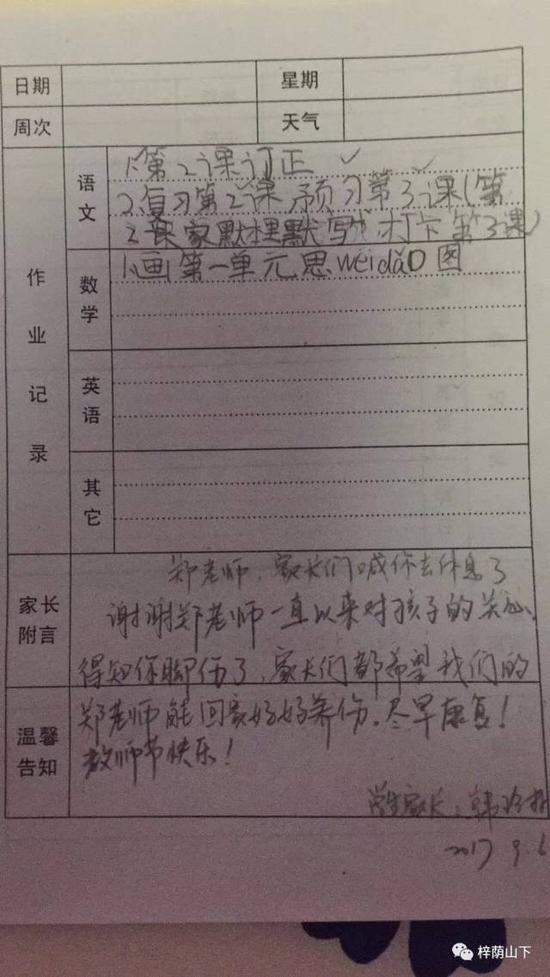 日期 星期
周次 天气
作业记录
语文
1、第2课订正 ✓
2、复习第2课 预习第3课(第
2课家默 打卡第3课)
数学
1、画第一单元思wéidǎo图
英语
其它
家长附言
郑老师，家长们喊你去休息了
谢谢郑老师一直以来对孩子的关心，
得知你脚伤了，家长们都希望我们的
温馨告知
郑老师能回家好好养伤，尽早康复！
教师节快乐！
学生家长：韩
2017 9.6
梓荫山下